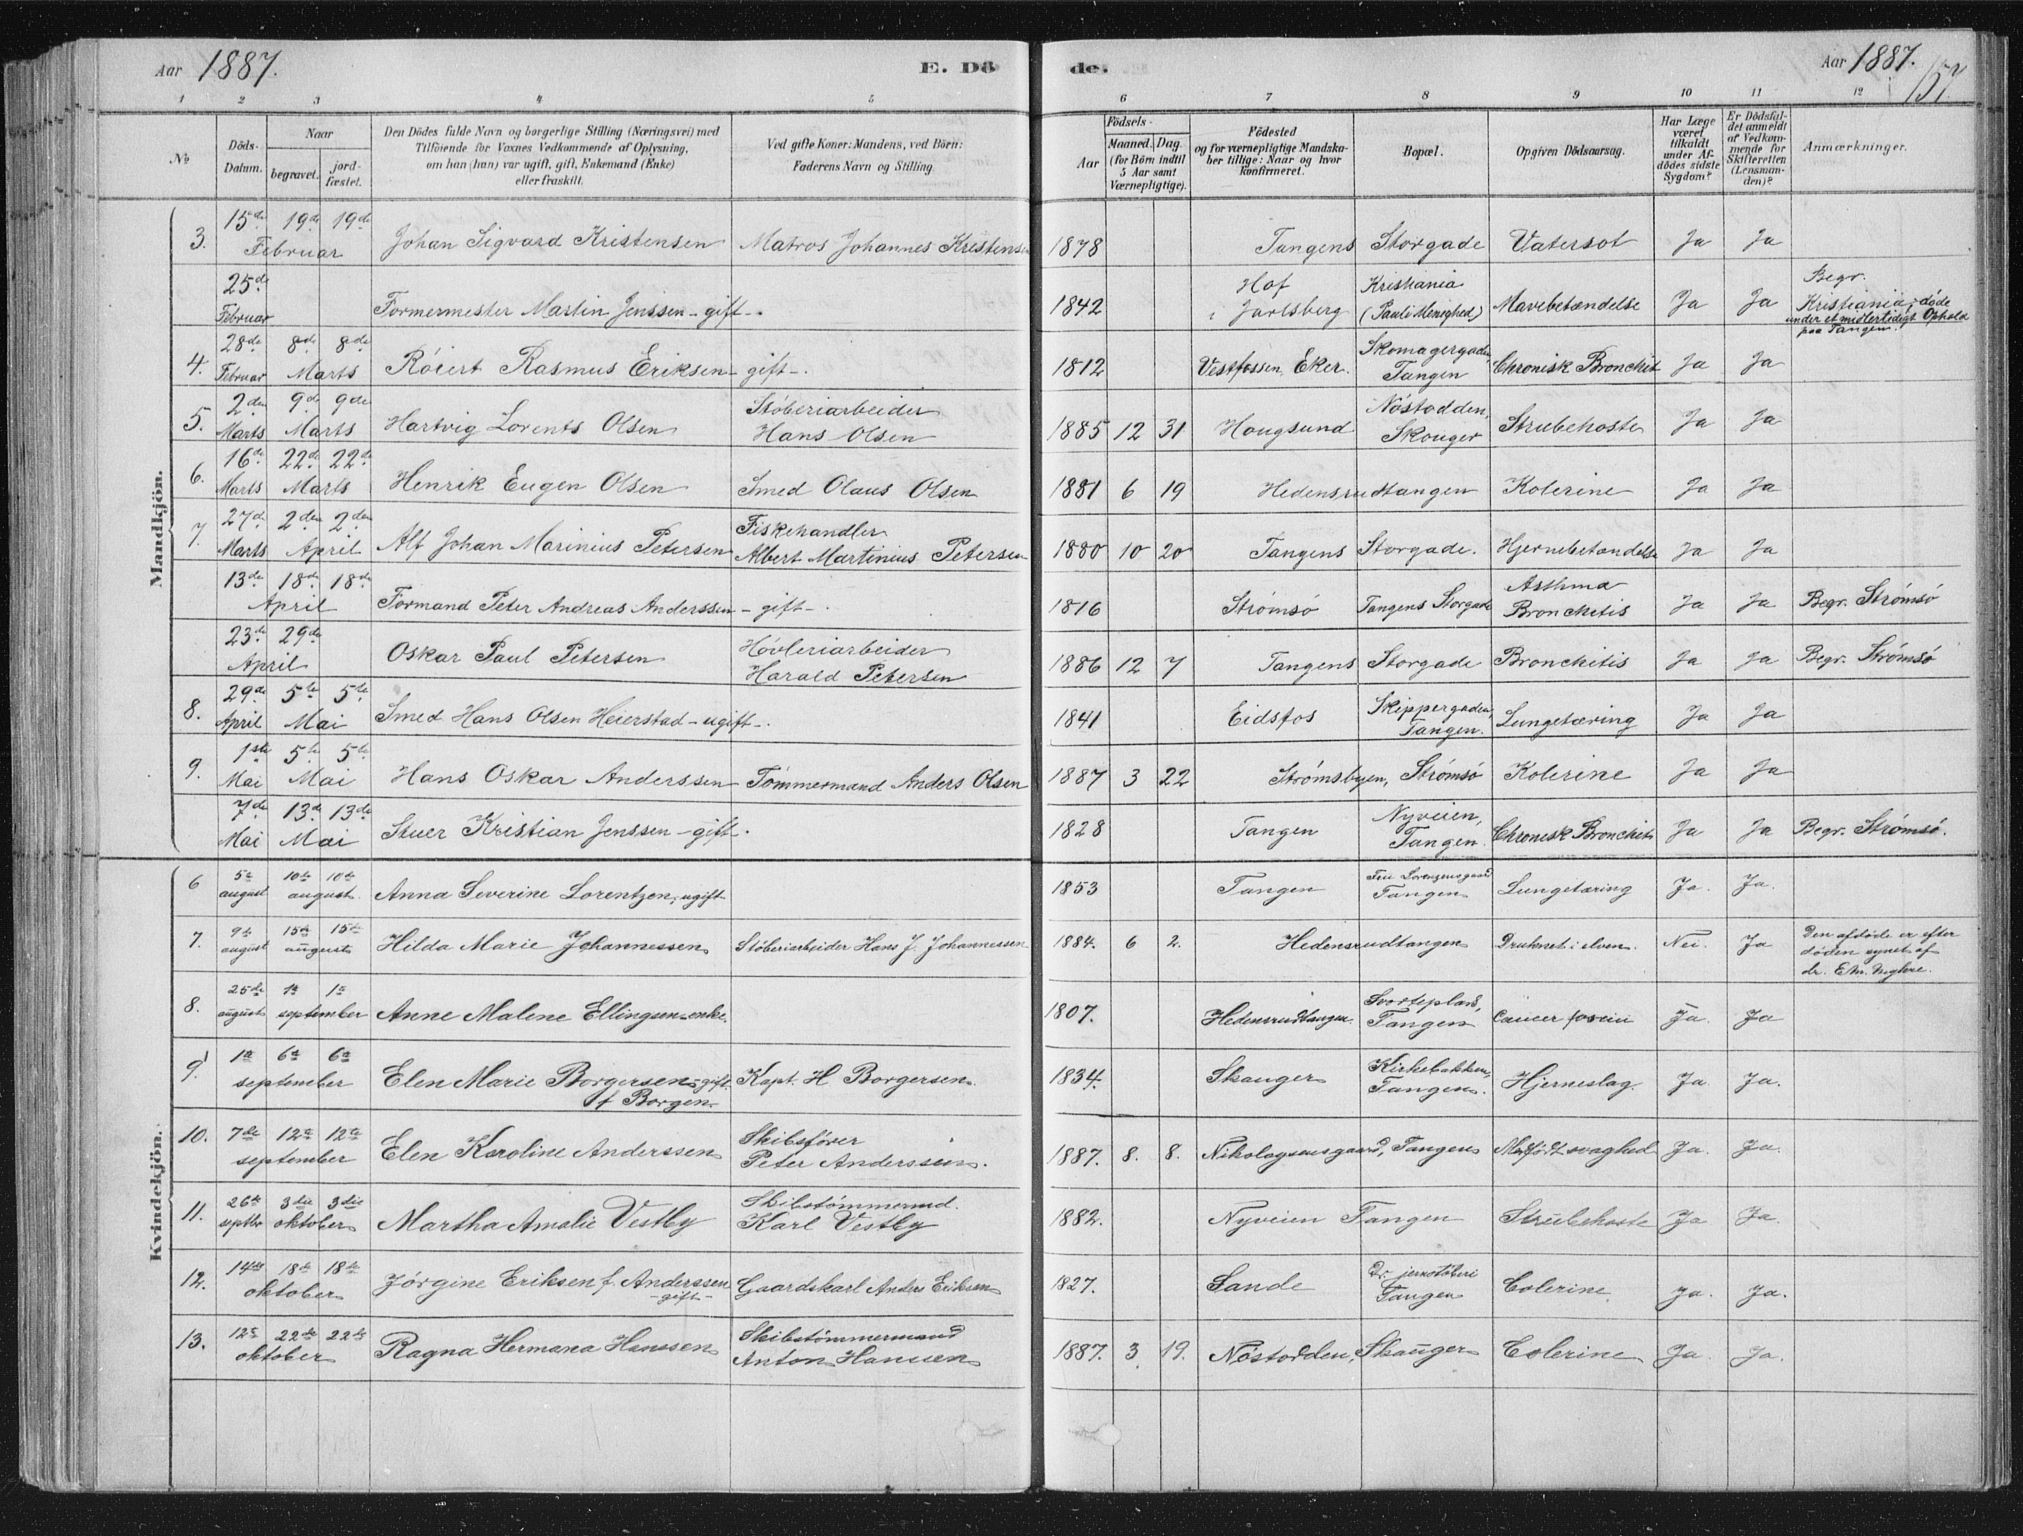 Aar 1887. E. Dö de. Aar 1887.
157
1 2 3 4 5 6 7 8 9 10 11 12
№ Döds-Datum. Naar begravet. jordfæstet. Den Dödes fulde Navn og borgerlige Stilling (Næringsvei) med Tilföiende for Voxnes Vedkommende af Oplysning, om han (hun) var ugift, gift, Enkemand (Enke) eller fraskilt. Ved gifte Koner: Mandens, ved Börn: Faderens Navn og Stilling. Födsels- Aar Maaned. Dag (for Börn indtil 5 Aar samt Værnepligtige). Födested og for værnepligtige Mandskaber tillige: Naar og hvor konfirmeret. Bopæl. Opgiven Dödsaarsag. Har Læge været tilkaldt under Afdödes sidste Sygdom? Er Dödsfaldet anmeldt af Vedkommende for Skifteretten (Lensmanden)? Anmærkninger.
Mandkjön.
3. 15de Februar 19de 19de Johan Sigvard Kristensen Matros Johannes Kristensen 1878 Tangens Storgade Vatersot Ja Ja
25de Februar Formermester Martin Jenssen - gift -. 1842 Hof i Jarlsberg Kristiania (Pauli Menighed) Mavebetændelse Ja Ja Begr. Kristiania; døde under et midlertidigt Ophold paa Tangen.
4. 28de Februar 8de 8de Marts Röiert Rasmus Eriksen - gift -. 1812 Vestfossen, Eker. Skomagergaden, Tangen Chronisk Bronchit Ja Ja
5. 2den Marts 9de 9de Marts Hartvig Lorents Olsen Støberiarbeider Hans Olsen 1885 12 31 Hougsund Nøstodden, Skouger Strubehoste Ja Ja
6. 16de Marts 22de 22de Marts Henrik Eugen Olsen Smed Olaus Olsen 1881 6 19 Hedensrudtangen Kolerine Ja Ja
7. 27de Marts 2den 2den April Alf Johan Marinius Petersen Fiskehandler Albert Martinius Petersen 1880 10 20 Tangens Storgade. Hjernebetændelse Ja Ja
13de April 18de 18de Formand Peter Andreas Anderssen - gift -. 1816 Strømsø Tangens Storgade Asthma Bronchitis Ja Ja Begr. Strømsø
23de April 29de Oskar Paul Petersen Høvleriarbeider Harald Petersen 1886 12 7 Tangens Storgade Bronchitis Ja Ja Begr. Strømsø
8. 29de April 5te 5te Mai Smed Hans Olsen Heierstad - ugift -. 1841 Eidsfos Skippergaden, Tangen. Lungetæring Ja Ja
9. 1ste Mai 5te 5te Mai Hans Oskar Anderssen Tømmermand Anders Olsen 1887 3 22 Strømsbyen, Strømsø Kolerine Ja Ja
7de Mai 13de 13de Mai Stuer Kristian Jenssen - gift -. 1828 Tangen Nyveien, Tangen. Chronisk Bronchit Ja Ja Begr. Strømsø.
Kvindekjön.
6 5te august 10de 10de august Anna Severine Lorentzen, ugift 1853 Tangen Tangen Lungetæring Ja. Ja.
7. 9de august 15de 15de august Hilda Marie Johannessen Støberiarbeider Hans J. Johannessen 1884. 6 2. Hedensrudtangen Druknet i elven. Nei. Ja Den afdøde er efter døden synet af dr.
8. 25de august 1ste 1ste september Anne Malene Ellingsen - enke. 1807. Hedensrudtangen Svorteplads, Tangen Cancer Ja. Ja
9. 1ste september 6te 6te Elen Marie Borgersen - gift f Borgen Kapt. H Borgersen. 1834. Skauger Kirkebakken, Tangen. Hjerneslag. Ja. Ja.
10. 7de september 12te 12te Elen Karoline Anderssen Skibsfører Peter Anderssen. 1887. 8. 8. Nikolaysensgaard, Tangen Medfødt svaghed Ja. Ja.
11. 26de septbr 3die 3die oktober Martha Amalie Vestby Skibstømmermd. Karl Vestby 1882. Nyveien Tangen Strubehoste Ja Ja.
12. 14de oktober 18de 18de Jørgine Eriksen f. Anderssen - gift - Gaardskarl Anders Eriksen 1827. Sande Dr. jernstøberi Tangen Colerine. ja. Ja.
13. 12te oktober 22de 22de Ragna Hermana Hanssen Skibstømmermand Anton Hanssen 1887. 3 19. Nøstodden, Skauger Colerine Ja. Ja.